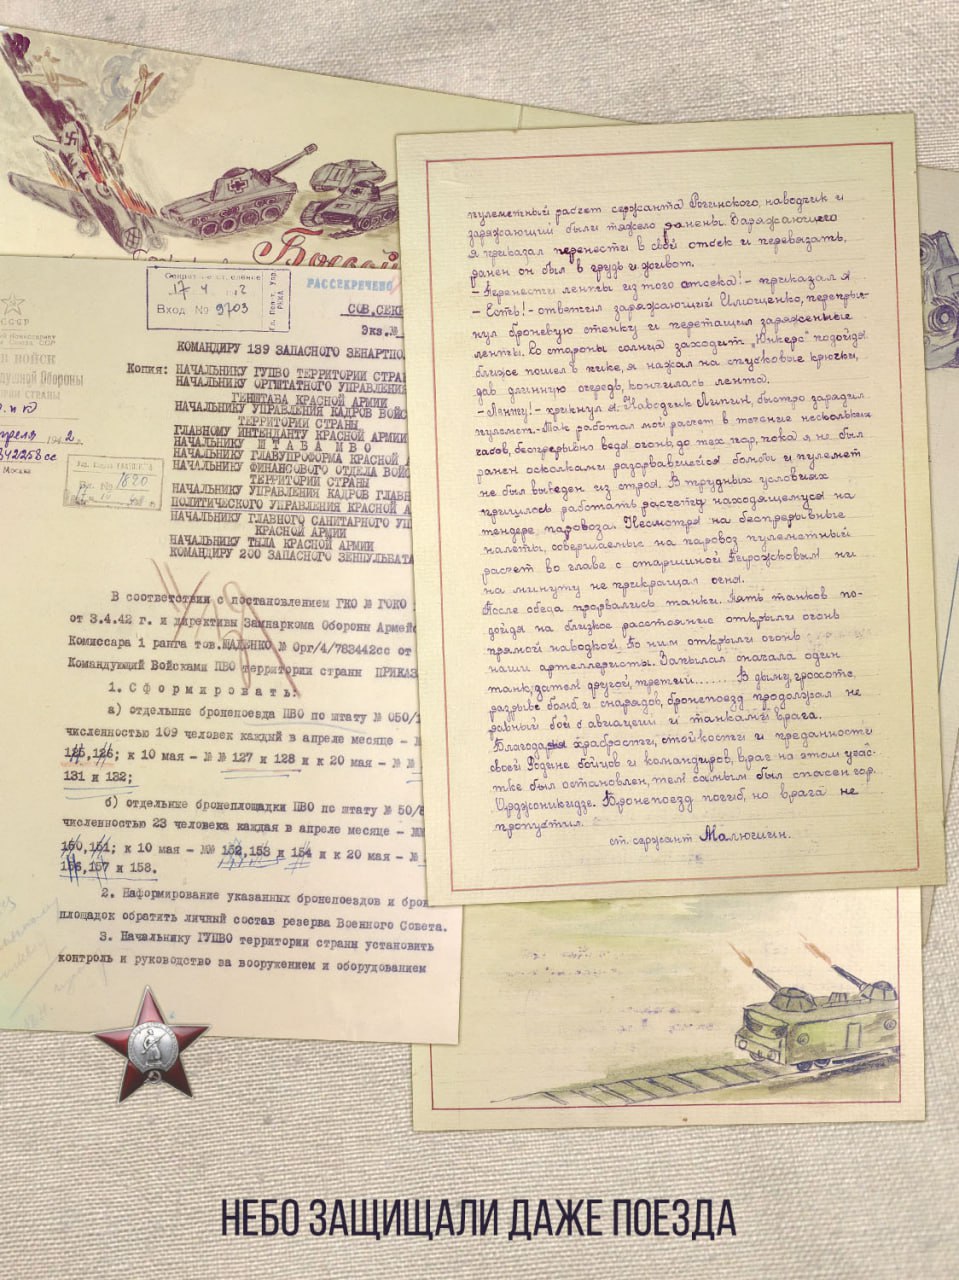 Боевой
СССР
ВОЙСК
Воздушной Обороны
территории страны
апреля 1942 г.
Москва
Секретное отделение
17 4 2
Вход № 9703
РАССЕКРЕЧЕНО
СОВ.СЕК
Экз.№
1820
КОМАНДИРУ 139 ЗАПАСНОГО ЗЕНАРТПО
Копия: НАЧАЛЬНИКУ ГУПВО ТЕРРИТОРИИ СТРА
НАЧАЛЬНИКУ ОРГШТАТНОГО УПРАВЛЕНИЯ
ГЕНШТАБА КРАСНОЙ АРМИИ
НАЧАЛЬНИКУ УПРАВЛЕНИЯ КАДРОВ ВОЙС
ТЕРРИТОРИИ СТРАНЫ
ГЛАВНОМУ ИНТЕНДАНТУ КРАСНОЙ АРМИИ
НАЧАЛЬНИКУ ШТАБА МВО
НАЧАЛЬНИКУ ГЛАВУПРОФОРМА КРАСНОЙ А
НАЧАЛЬНИКУ ФИНАНСОВОГО ОТДЕЛА ВОЙ
ТЕРРИТОРИИ СТРАНЫ
НАЧАЛЬНИКУ УПРАВЛЕНИЯ КАДРОВ ГЛАВН
ПОЛИТИЧЕСКОГО УПРАВЛЕНИЯ КРАСНОЙ А
НАЧАЛЬНИКУ ГЛАВНОГО САНИТАРНОГО УП
КРАСНОЙ АРМИИ
НАЧАЛЬНИКУ ТЫЛА КРАСНОЙ АРМИИ
КОМАНДИРУ 200 ЗАПАСНОГО ЗЕНПУЛЬБАТА
В соответствии с постановлением ГКО № ГОКО
от 3.4.42 г. и директивы Замнаркома Обороны Армейс
Комиссара 1 ранга тов.ЩАДЕНКО № Орг/4/783442сс от
Командующий Войсками ПВО территории страны ПРИКАЗ
1. Сформировать:
а) отдельные бронепоезда ПВО по штату № 050/1
численностью 109 человек каждый в апреле месяце - №
125,126; к 10 мая - № № 127 и 128 и к 20 мая - №
131 и 132;
б) отдельные бронеплощадки ПВО по штату № 50/8
численностью 23 человека каждая в апреле месяце - №№
150,151; к 10 мая - №№ 152,153 и 154 и к 20 мая - №
156,157 и 158.
2. Наформирование указанных бронепоездов и брон
площадок обратить личный состав резерва Военного Совета.
3. Начальнику ГУПВО территории страны установить
контроль и руководство за вооружением и оборудованием
пулеметный расчет сержанта Рогинского, наводчик и
заряжающий были тяжело ранены. Заряжающего
я приказал перенести в свой отсек и перевязать,
ранен он был в грудь и живот.
- Перенести ленты из того отсека! - приказал я.
- Есть! - ответил заряжающий Илющенко, перепры-
нул броневую стенку и перетащил заряженные
ленты. Со стороны солнца заходит "Юнкерс" подойдя
ближе пошел в пике, я нажал на спусковые крючки,
дав длинную очередь, кончилась лента.
- Ленту! - крикнул я. Наводчик Липин, быстро зарядил
пулемет.- Так работал мой расчет в течение нескольких
часов, беспрерывно ведя огонь, до тех пор, пока я не был
ранен осколками разорвавшейся бомбы и пулемет
не был выведен из строя. В трудных условиях
пришлось работать расчету находящемуся на
тендере паровоза. Несмотря на беспрерывные
налеты, совершаемые на паровоз пулеметный
расчет во главе с старшиной Бирюковым ни
на минуту не прикращал огня.
После обеда прорвались танки. Пять танков по-
дойдя на близкое расстояние открыли огонь
прямой наводкой. По ним открыли огонь
наши артиллеристы. Запылал сначала один
танк, затем другой, третий....... В дыму, грохоте,
разрыве бомб и снарядов, бронепоезд продолжал не
равный бой с авиацией и танками врага.
Благодаря храбрости, стойкости и преданности
своей Родине бойцов и командиров, враг на этом учас-
тке был остановлен, тем самым был спасен гор.
Орджоникидзе. Бронепоезд погиб, но врага не
пропустил.
ст. сержант Малюгин.
НЕБО ЗАЩИЩАЛИ ДАЖЕ ПОЕЗДА